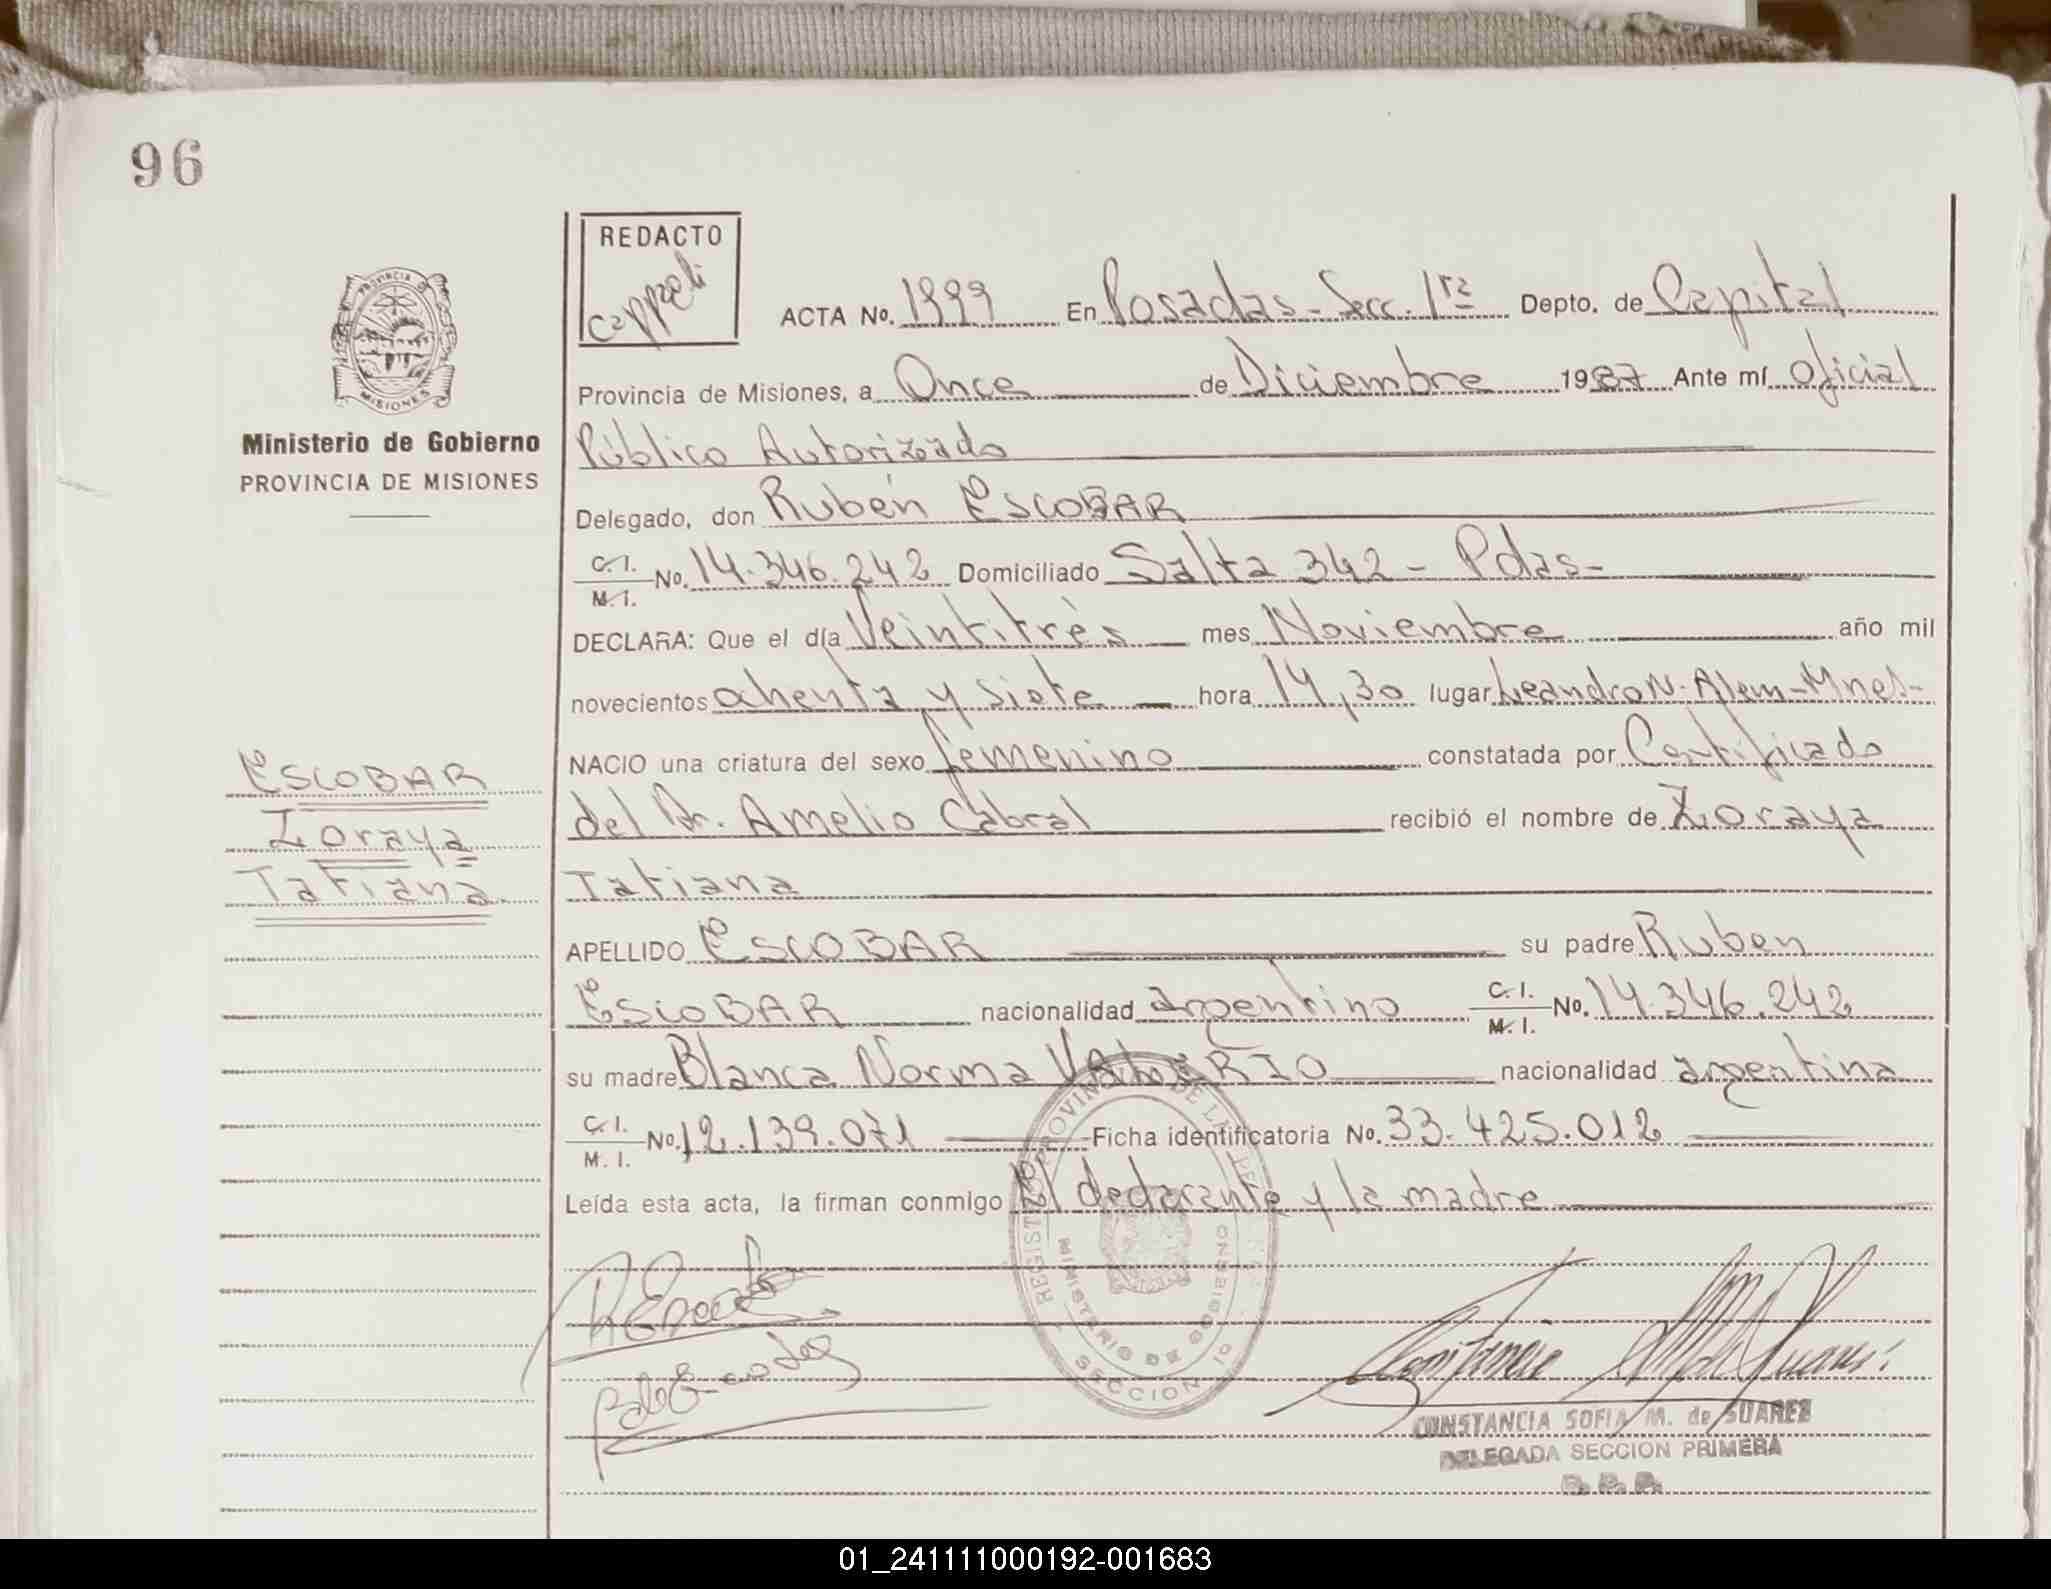 96
REDACTO
Cappeli
PROVINCIA DE
MISIONES
Ministerio de Gobierno
PROVINCIA DE MISIONES
ACTA No. 1999 En Posadas - Secc. 1ra Depto. de Capital
Provincia de Misiones, a Once de Diciembre 1987 Ante mí oficial
Público Autorizado
Delegado, don Rubén ESCOBAR
C. I. M. I. No. 14.346.242 Domiciliado Salta 342 - Pdas-
DECLARA: Que el día Veintitrès mes Noviembre año mil
novecientos ochenta y siete hora 14,30 lugar Leandro N. Alem-Mnes-
NACIO una criatura del sexo femenino constatada por Certificado
del Dr. Amelio Cabral recibió el nombre de Zoraya
Tatiana
ESCOBAR
Zoraya
Tatiana
APELLIDO ESCOBAR su padre Ruben
ESCOBAR nacionalidad argentino C. I. M. I. No. 14.346.242
su madre Blanca Norma VALERIO nacionalidad argentina
C. I. M. I. No. 12.139.071 Ficha identificatoria No. 33.425.012
Leída esta acta, la firman conmigo El declarante y la madre
REGISTRO PROVINCIAL DE LAS PERSONAS
MINISTERIO DE GOBIERNO
SECCION 1º
CONSTANCIA SOFIA M. de SUAREZ
DELEGADA SECCION PRIMERA
R. P. P.
01_241111000192-001683